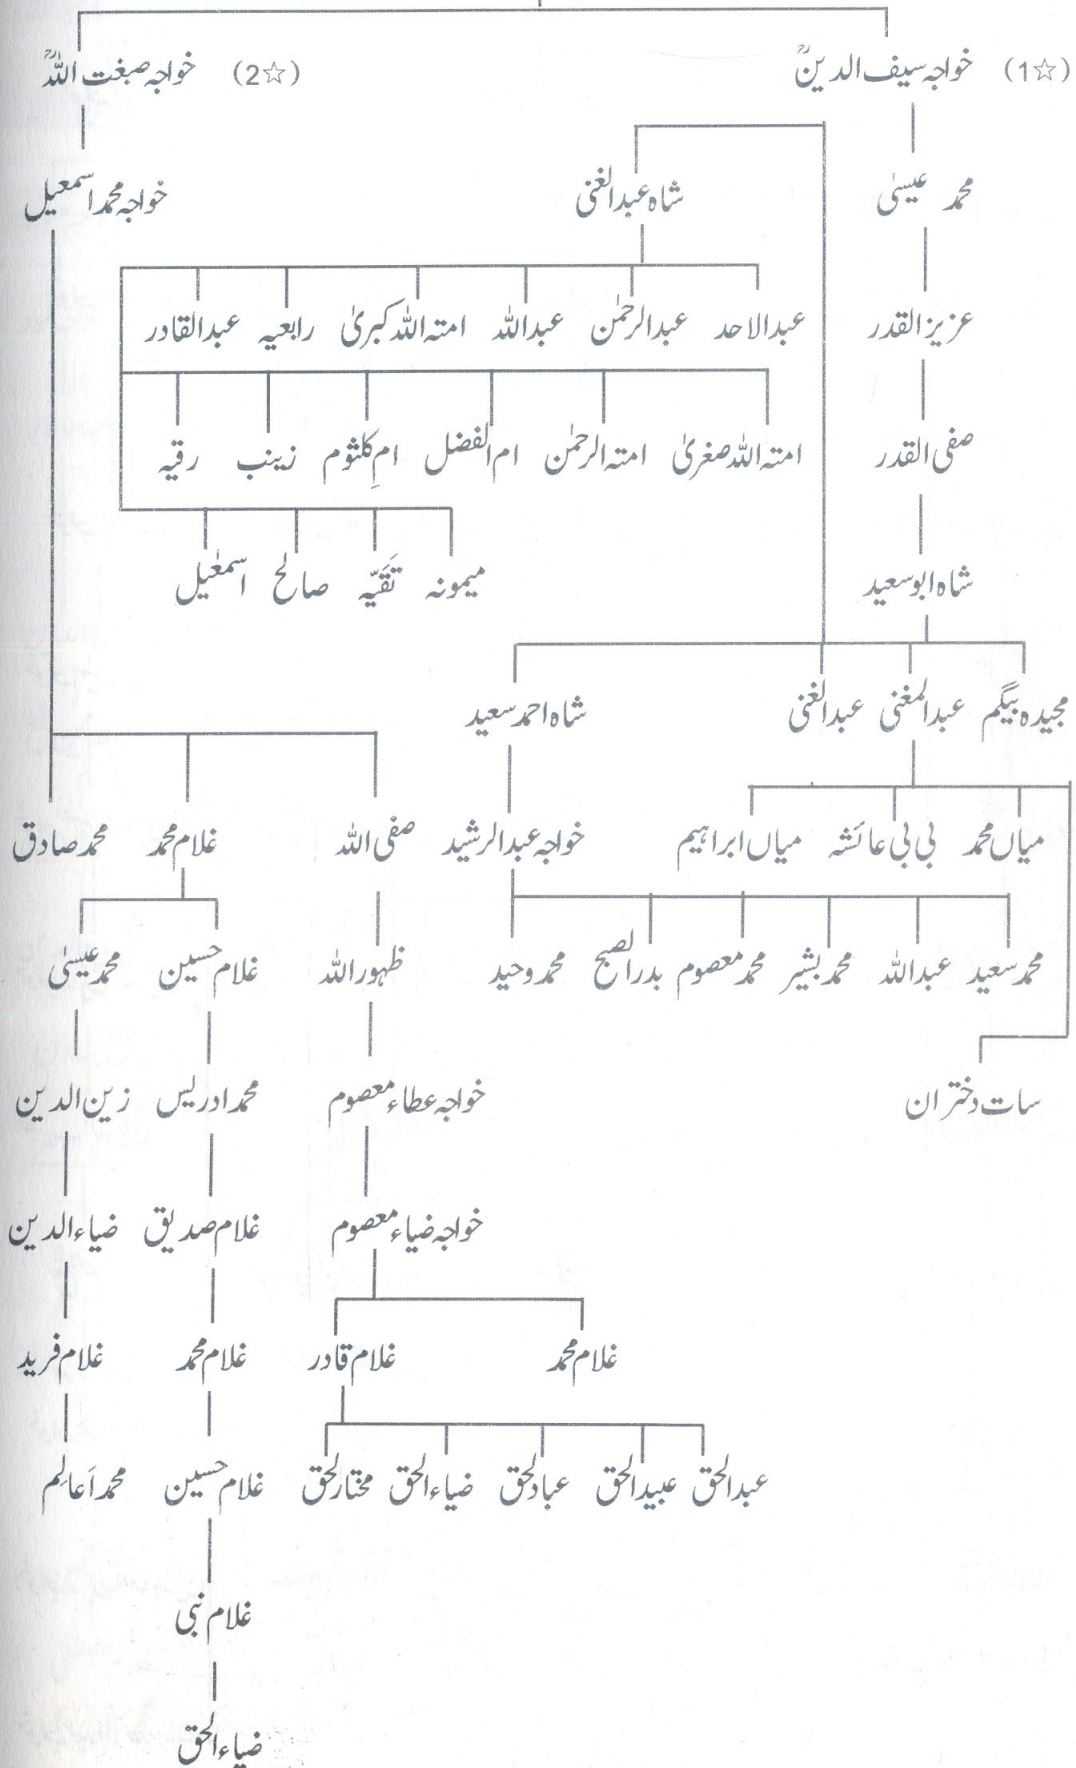 (1☆) خواجہ سیف الدینؒ (2☆) خواجہ صبغت اللہؒ
محمد عیسیٰ شاہ عبدالغنی خواجہ محمد اسمعیل
عزیز القدر عبدالاحد عبدالرحمٰن عبداللہ امتہ اللہ کبریٰ رابعیہ عبدالقادر
صفی القدر امتہ اللہ صغریٰ امتہ الرحمٰن ام الفضل امِ کلثوم زینب رقیہ
شاہ ابوسعید میمونہ تَقَیّہ صالح اسمعٰیل
مجیدہ بیگم عبدالمغنی عبدالغنی شاہ احمد سعید
میاں محمد بی بی عائشہ میاں ابراہیم خواجہ عبدالرشید صفی اللہ غلام محمد محمد صادق
محمد سعید عبداللہ محمد بشیر محمد معصوم بدر الصبح محمد وحید ظہور اللہ غلام حسین محمد عیسیٰ
سات دختران خواجہ عطاء معصوم محمد ادریس زین الدین
خواجہ ضیاء معصوم غلام صدیق ضیاء الدین
غلام محمد غلام قادر غلام محمد غلام فرید
عبدالحق عبیدالحق عبادلحق ضیاء الحق مختارلحق غلام حسین محمد اَعالِم
غلام نبی
ضیاء الحق